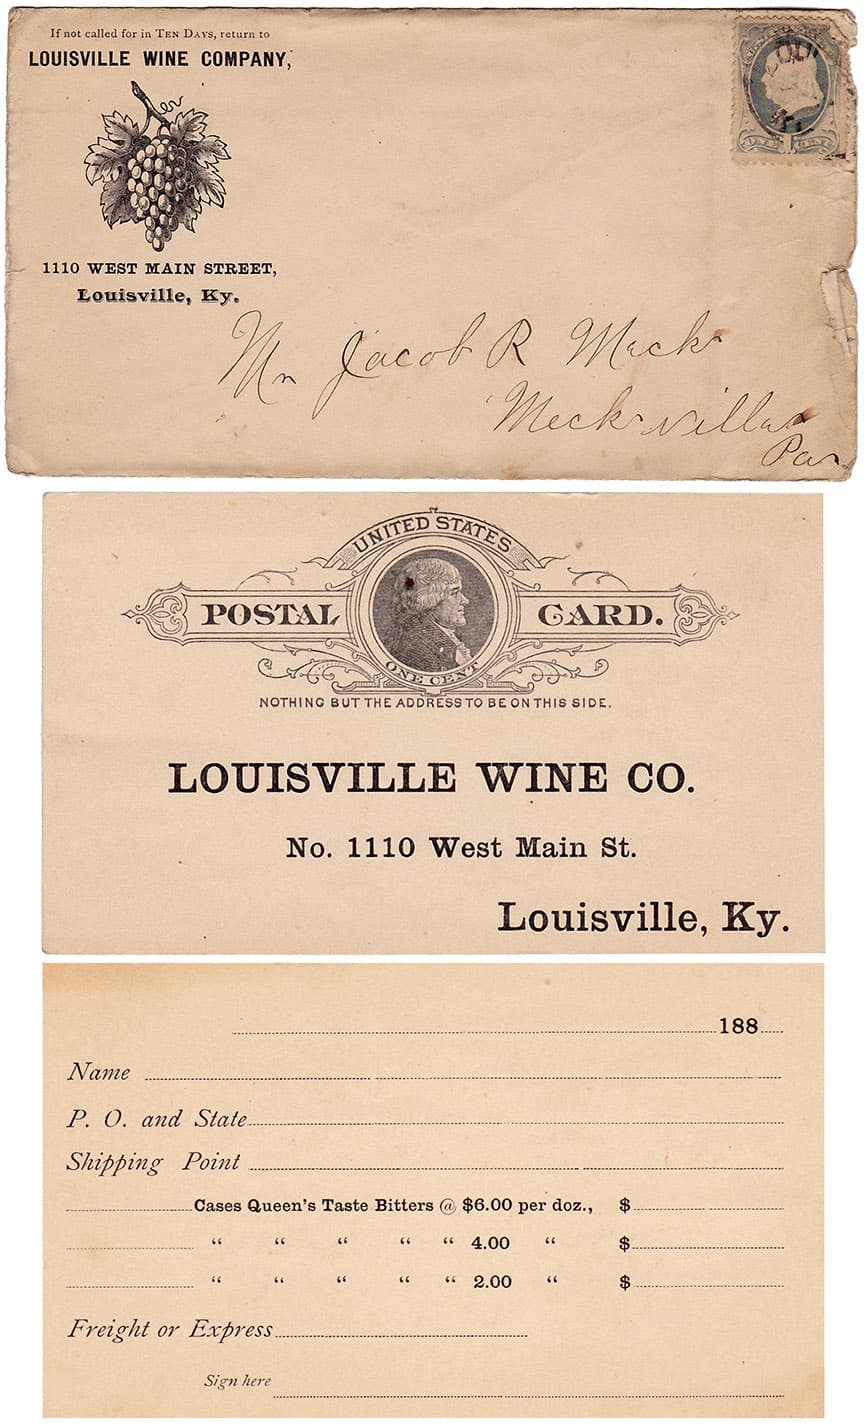 If not called for in TEN DAYS, return to
LOUISVILLE WINE COMPANY,
1110 WEST MAIN STREET,
Louisville, Ky.
Mr Jacob R Meck
Mecksville
Pa
UNITED STATES
POSTAL CARD.
ONE CENT
NOTHING BUT THE ADDRESS TO BE ON THIS SIDE.
LOUISVILLE WINE CO.
No. 1110 West Main St.
Louisville, Ky.
188
Name
P. O. and State
Shipping Point
Cases Queen's Taste Bitters @ $6.00 per doz., $
" " " " " 4.00 " $
" " " " " 2.00 " $
Freight or Express
Sign here